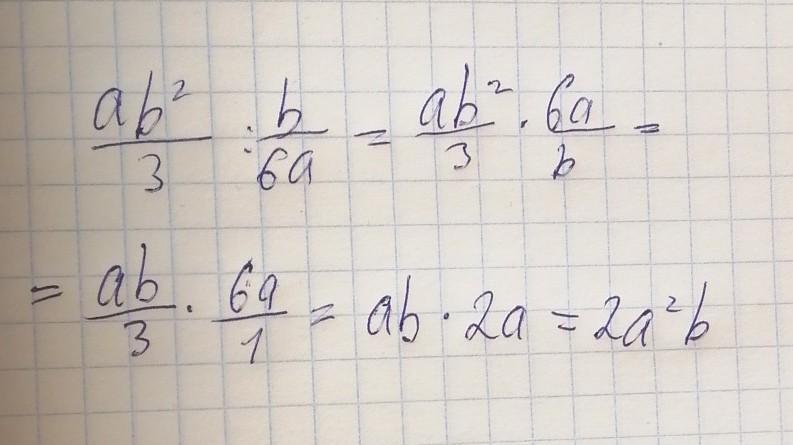 ab²/3 : b/6a = ab²/3 · 6a/b =
= ab/3 · 6a/1 = ab · 2a = 2a²b